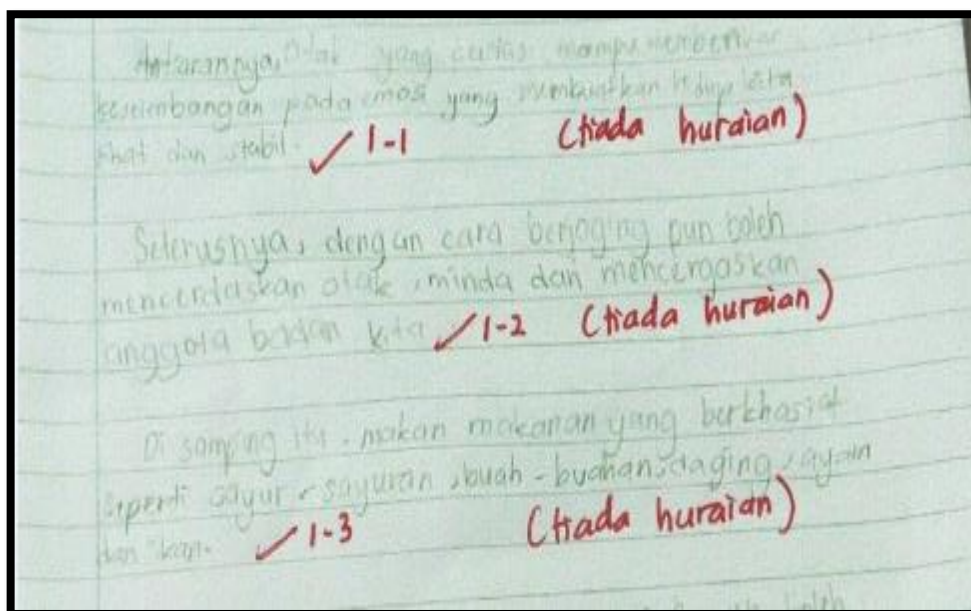 Antarannya, otak yang cerdas mampu memberikan
keseimbangan pada emosi yang membuatkan hidup kita
sihat dan stabil. ✓ 1-1 (tiada huraian)
Seterusnya, dengan cara berjoging pun boleh
mencerdaskan otak, minda dan mencergaskan
anggota badan kita ✓ 1-2 (tiada huraian)
Di samping itu, makan makanan yang berkhasiat
seperti sayur-sayuran, buah-buahan, daging, ayam
dan ikan. ✓ 1-3 (tiada huraian)
boleh